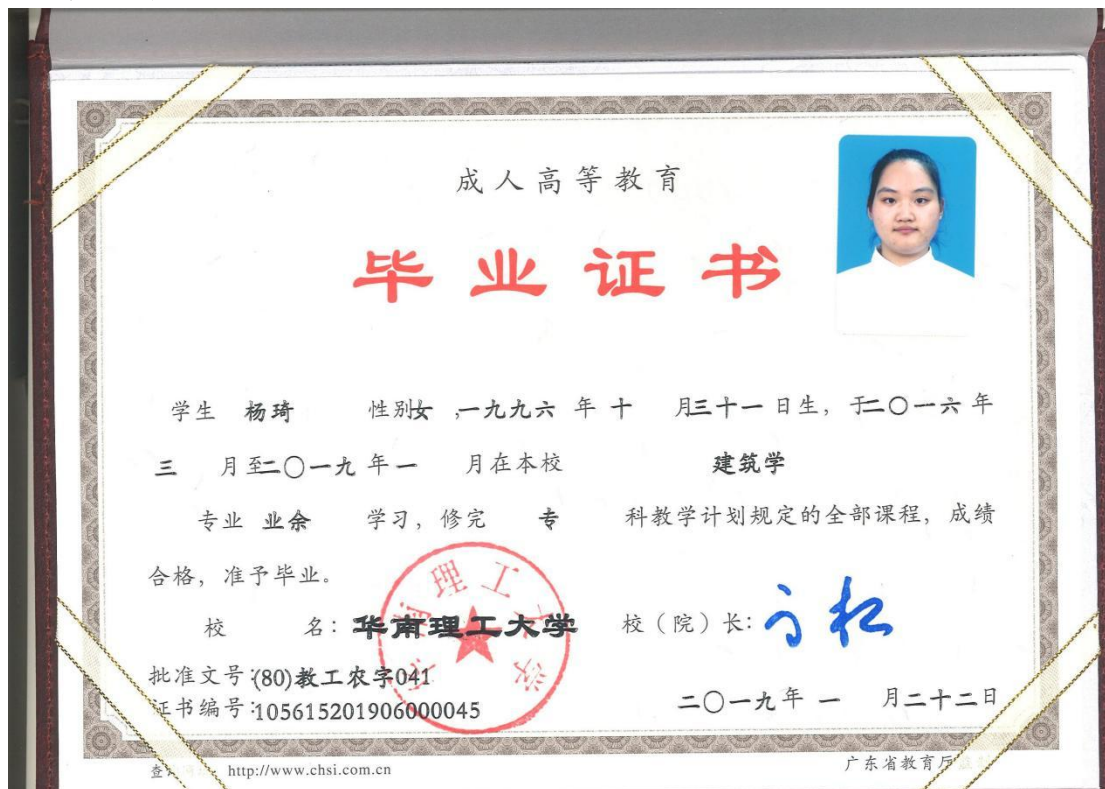 成人高等教育
毕业证书
学生 杨琦 性别女，一九九六 年 十 月三十一日生，于二〇一六年
三 月至二〇一九年一 月在本校 建筑学
专业 业余 学习，修完 专 科教学计划规定的全部课程，成绩
合格，准予毕业。
校 名：华南理工大学 校（院）长：
华南理工大学
批准文号：(80)教工农字041
证书编号：105615201906000045 二〇一九年 一 月二十二日
http://www.chsi.com.cn 广东省教育厅